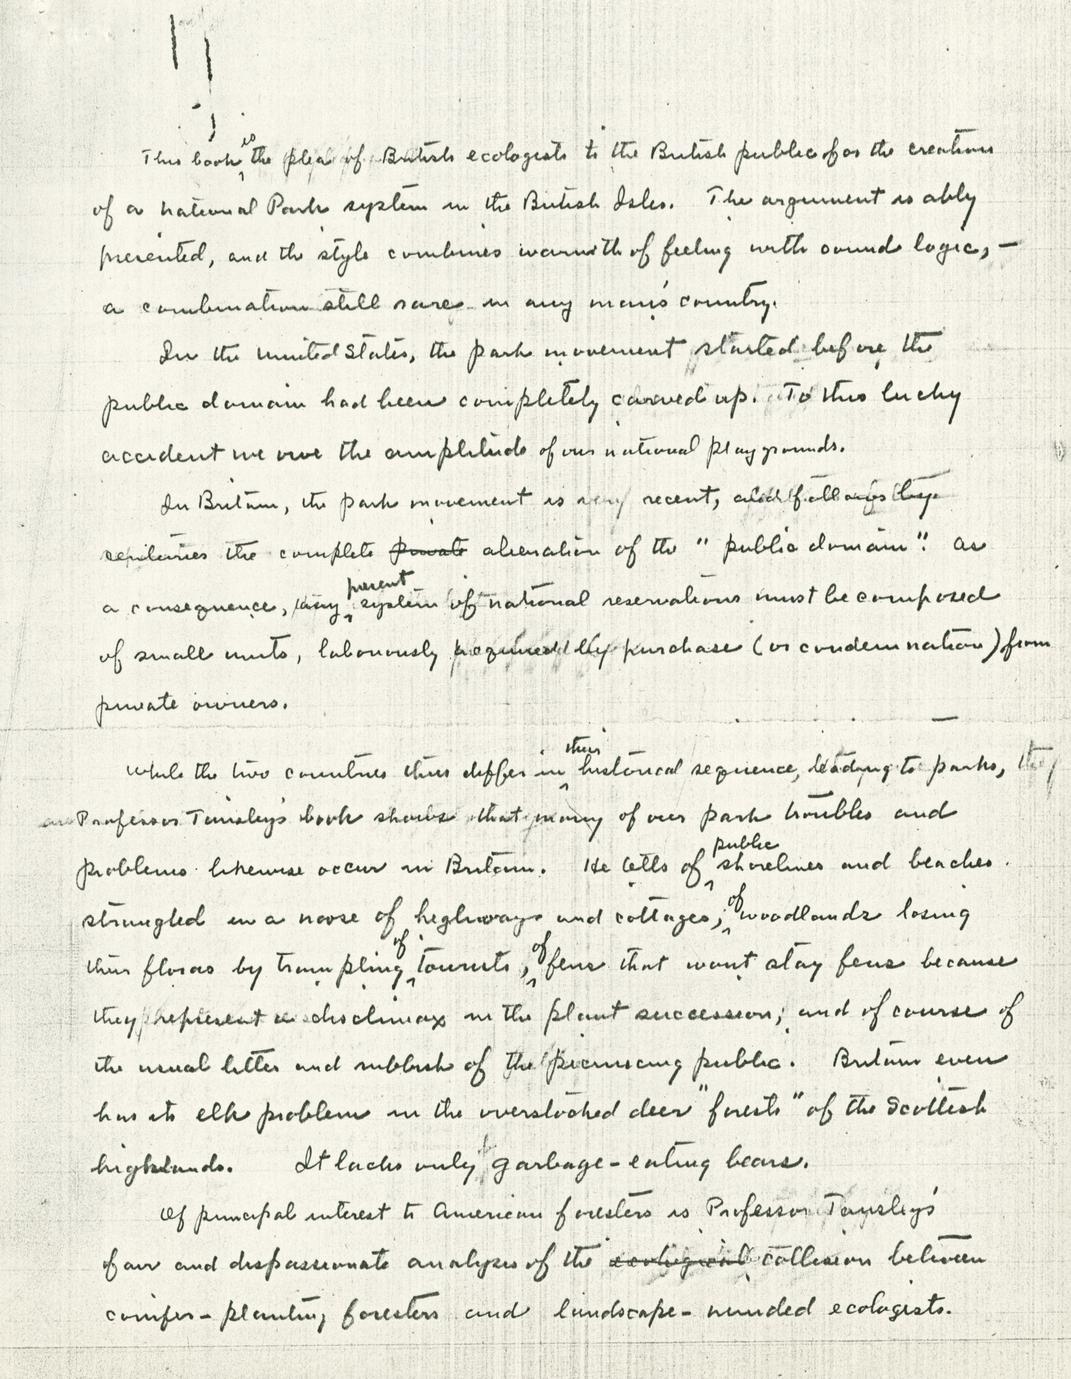 This book is the plea of British ecologists to the British public for the creation
of a national Park system in the British Isles. The argument is ably
presented, and the style combines warmth of feeling with sound logic, —
a combination still rare in any man's country.
In the United States, the park movement started before the
public domain had been completely carved up. To this lucky
accident we owe the amplitude of our national playgrounds.
In Britain, the park movement is very recent, and follows by
centuries the complete private alienation of the "public domain". As
a consequence, any present system of national reservations must be composed
of small units, laboriously acquired by purchase (or condemnation) from
private owners.
While the two countries thus differ in their historical sequence, leading to parks,
Professor Tansley's book shows that many of our park troubles and
problems likewise occur in Britain. He tells of public shorelines and beaches
strangled in a noose of highways and cottages, of woodlands losing
their floras by trampling of tourists, of fens that wont stay fens because
they represent a disclimax in the plant succession, and of course of
the usual litter and rubbish of the picnicing public. Britain even
has its elk problem in the overstocked deer "forests" of the Scottish
highlands. It lacks only garbage-eating bears.
Of principal interest to American foresters is Professor Tansley's
fair and dispassionate analysis of the ecological collision between
conifer-planting foresters and landscape-minded ecologists.